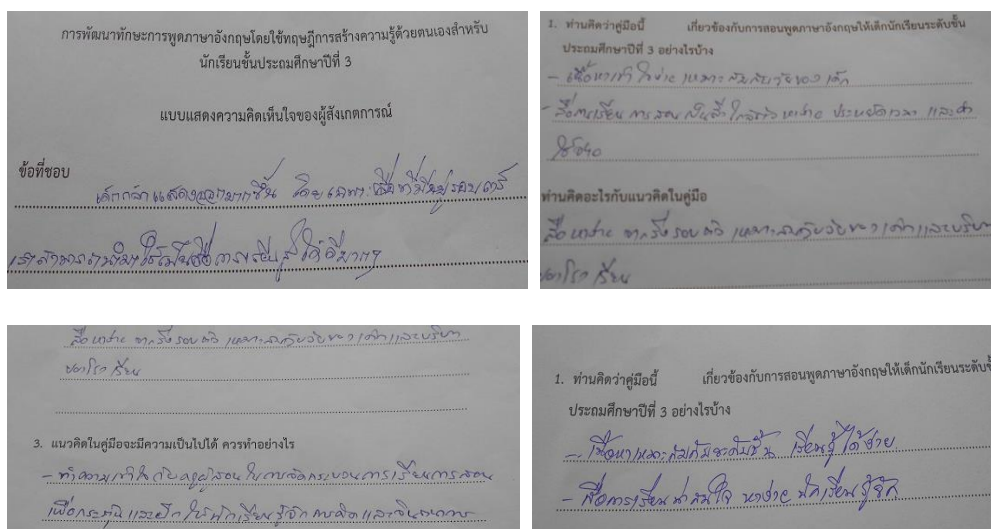 การพัฒนาทักษะการพูดภาษาอังกฤษโดยใช้ทฤษฎีการสร้างความรู้ด้วยตนเองสำหรับ
นักเรียนชั้นประถมศึกษาปีที่ 3
แบบแสดงความคิดเห็นใจของผู้สังเกตการณ์
ข้อที่ชอบ
เด็กกล้าแสดงออกมากขึ้น โดยเฉพาะสื่อที่มีอยู่รอบตัว
เราสามารถนำมาใช้เป็นสื่อการเรียนรู้ได้ดีมากๆ
1. ท่านคิดว่าคู่มือนี้ เกี่ยวข้องกับการสอนพูดภาษาอังกฤษให้เด็กนักเรียนระดับชั้น
ประถมศึกษาปีที่ 3 อย่างไรบ้าง
- เนื้อหาเข้าใจง่าย เหมาะสมกับวัยของเด็ก
- สื่อการเรียน การสอนเป็นสิ่งใกล้ตัว หาง่าย ประหยัดเวลา และค่า
ใช้จ่าย
ท่านคิดอะไรกับแนวคิดในคู่มือ
สื่อหาง่าย จากสิ่งรอบตัว เหมาะสมกับวัยของเด็กและบริบท
ของโรงเรียน
สื่อหาง่าย จากสิ่งรอบตัว เหมาะสมกับวัยของเด็กและบริบท
ของโรงเรียน
3. แนวคิดในคู่มือจะมีความเป็นไปได้ ควรทำอย่างไร
- ทำความเข้าใจกับครูผู้สอน ในการจัดกระบวนการเรียนการสอน
เพื่อกระตุ้นและฝึกให้นักเรียนรู้จักการคิดและจินตนาการ
1. ท่านคิดว่าคู่มือนี้ เกี่ยวข้องกับการสอนพูดภาษาอังกฤษให้เด็กนักเรียนระดับชั้
ประถมศึกษาปีที่ 3 อย่างไรบ้าง
- เนื้อหาเหมาะสมกับระดับชั้น เรียนรู้ได้ง่าย
- สื่อการเรียนน่าสนใจ หาง่าย นักเรียนรู้จัก